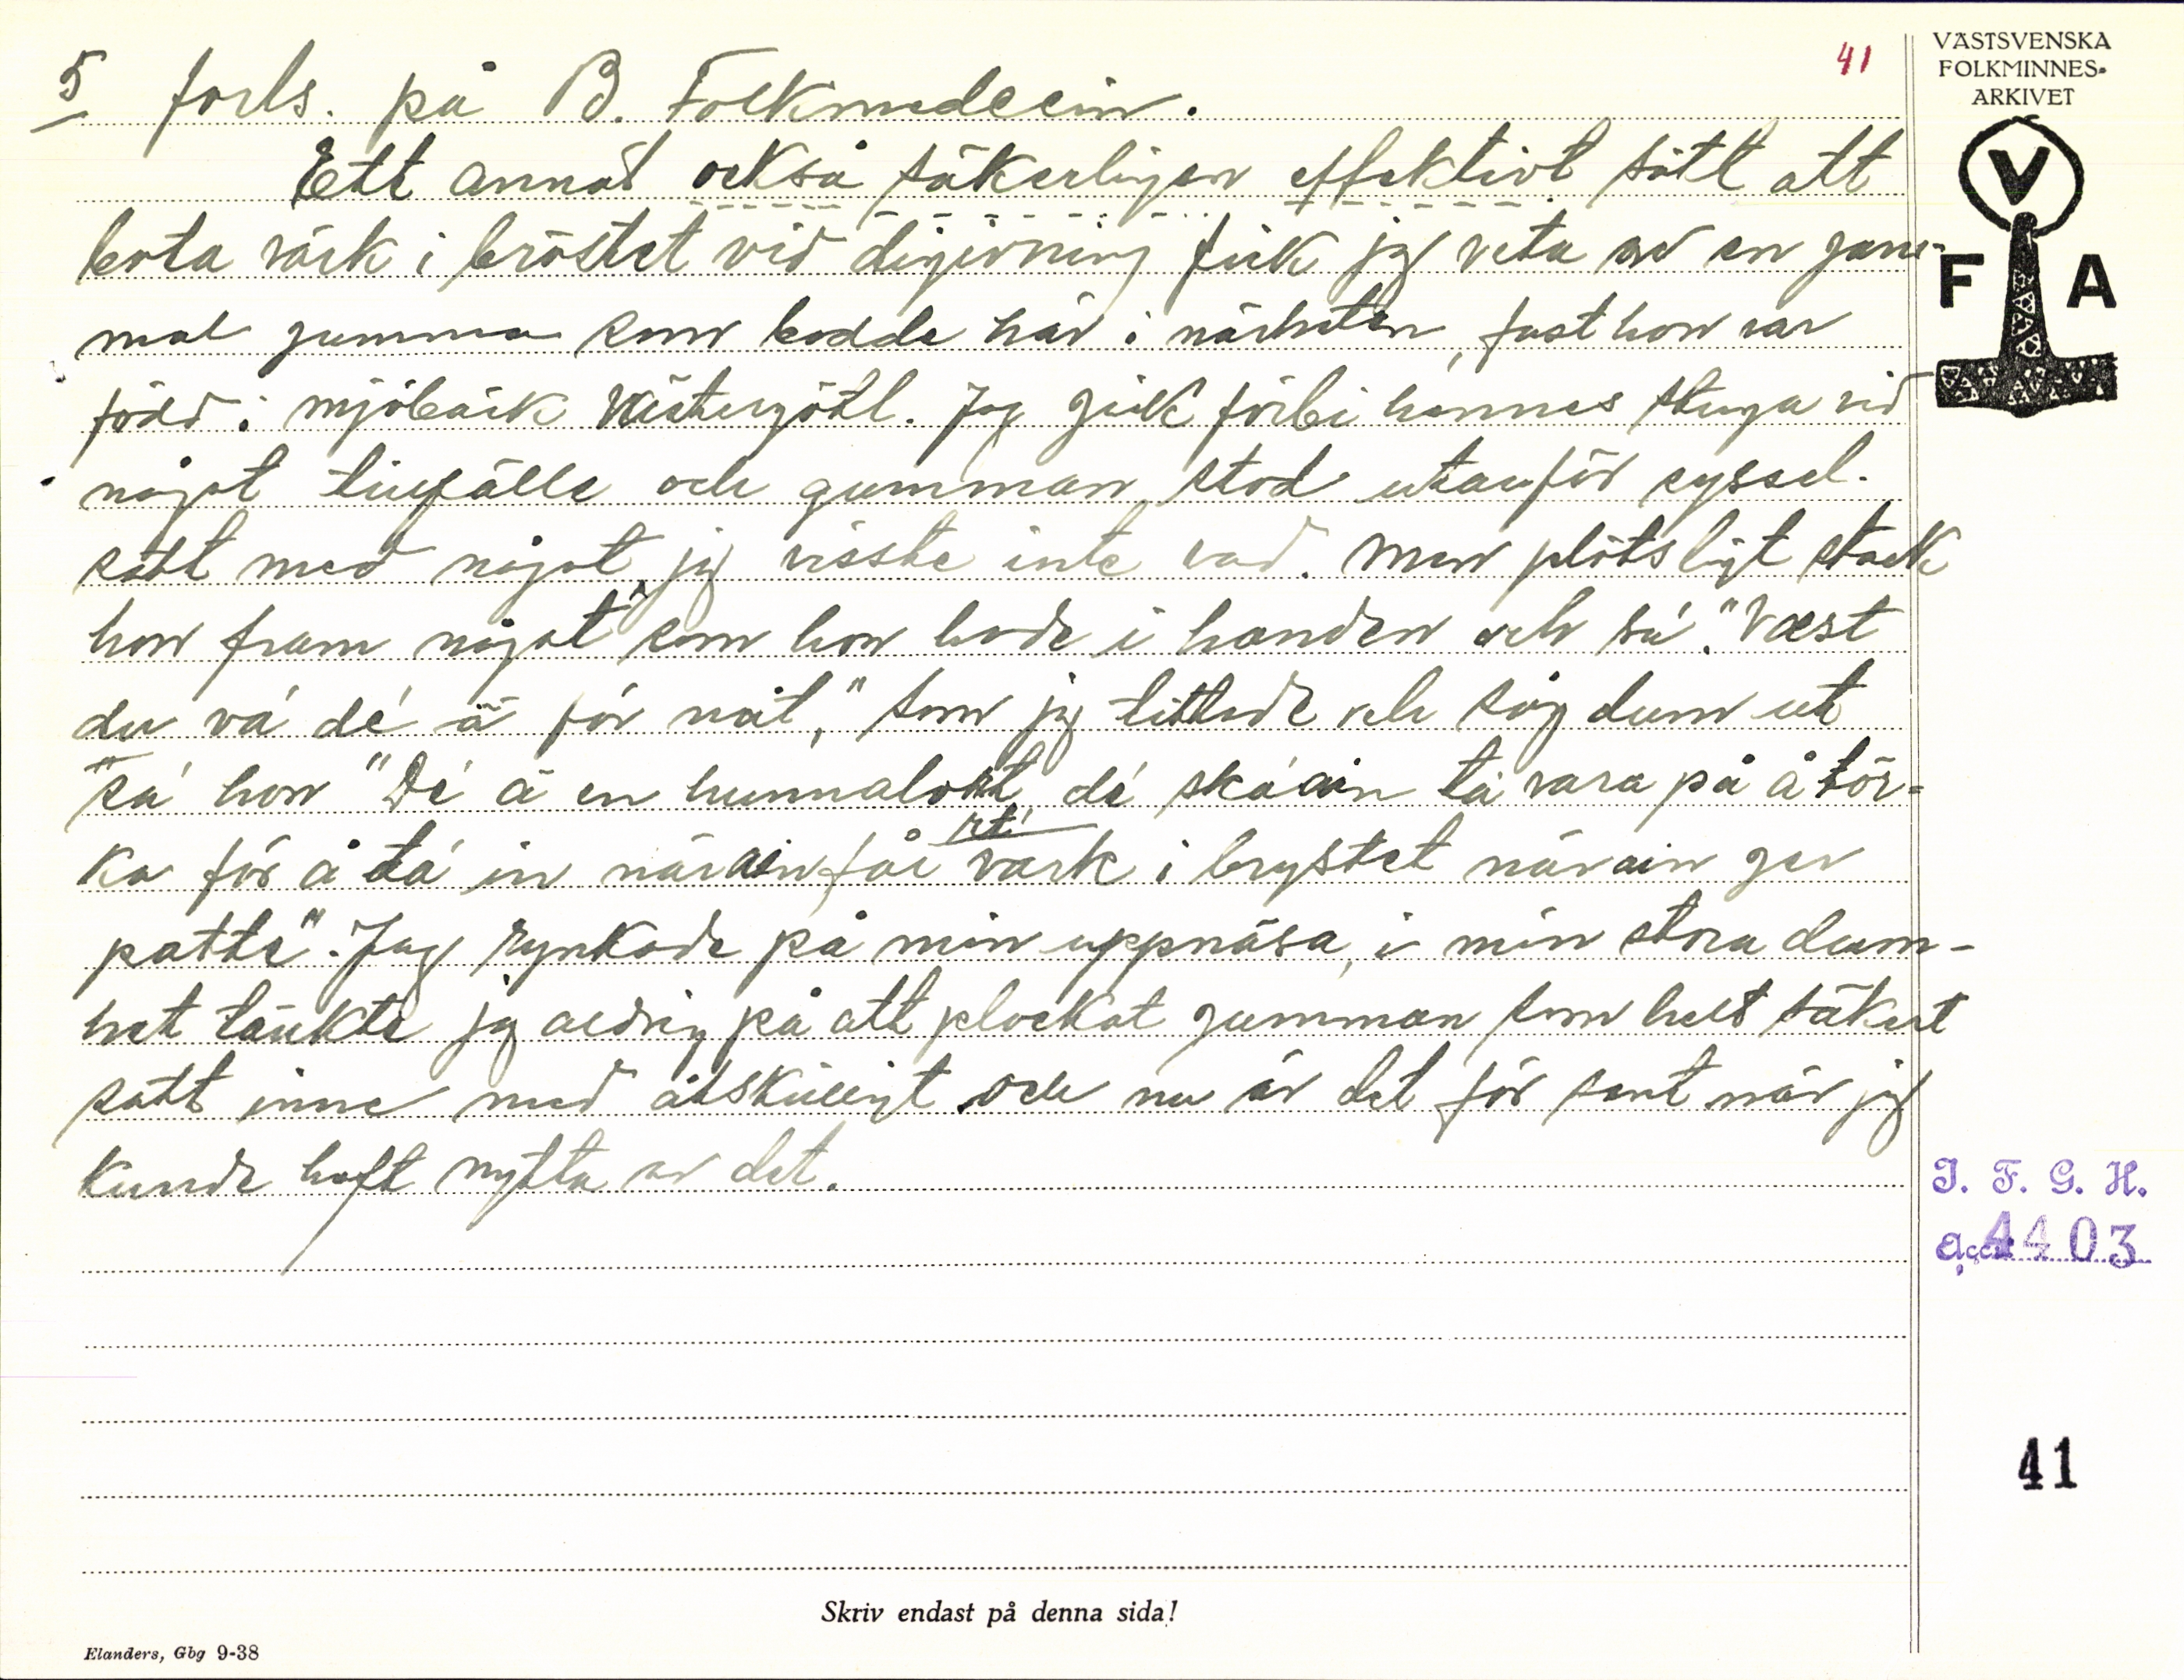 5 forts. på B. Folkmedecin.
41
Ett annat också säkerligen effektivt sätt att
bota värk i bröstet vid digivning fick jag veta av en gam-
mal gumma som bodde här i närheten, fast hon var
född i mjöbäck Västergötl. Jag gick förbi hennes stuga vid
något tillfälle och gumman stod utanför syssel-
satt med något, jag visste inte vad. Men plötsligt stack
hon fram något som hon hade i handen och sá. "Væst
du vá dé ä för nåt," som jag tittade och såg dum ut
"sá hon "Dé ä en hunnalort, dé ská ain ta vara på å tör-
ka för å tá in när ain får värk i brystet när ain ger
patte". Jag rynkade på min uppnäsa, i min stora dum-
het tänkte jag aldrig på att plockat gumman som helt säkert
satt inne med åtskilligt och nu är det för sent när jag
kunde haft nytta av det.
VÄSTSVENSKA
FOLKMINNES-
ARKIVET
V
F A
I. F. G. H.
Acc. 4403
41
Skriv endast på denna sida!
Elanders, Gbg 9-38